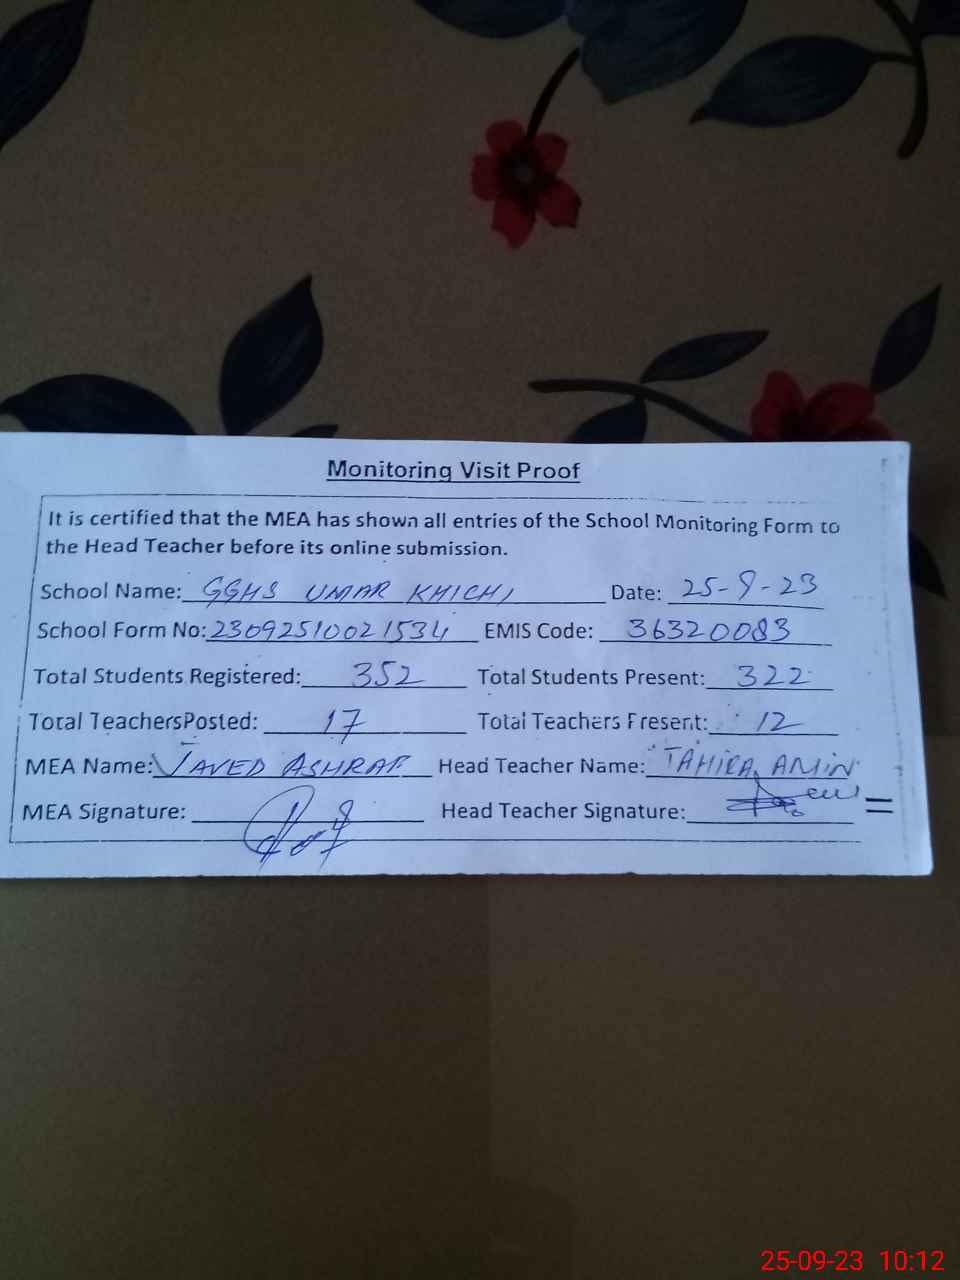 Monitoring Visit Proof
It is certified that the MEA has shown all entries of the School Monitoring Form to
the Head Teacher before its online submission.
School Name: GGHS UMAR KHICHI Date: 25-9-23
School Form No: 23092510021534 EMIS Code: 36320083
Total Students Registered: 352 Total Students Present: 322
Total TeachersPosted: 17 Total Teachers Present: 12
MEA Name: JAVED ASHRAF Head Teacher Name: TAHIRA AMIN
MEA Signature: Head Teacher Signature:
25-09-23 10:12